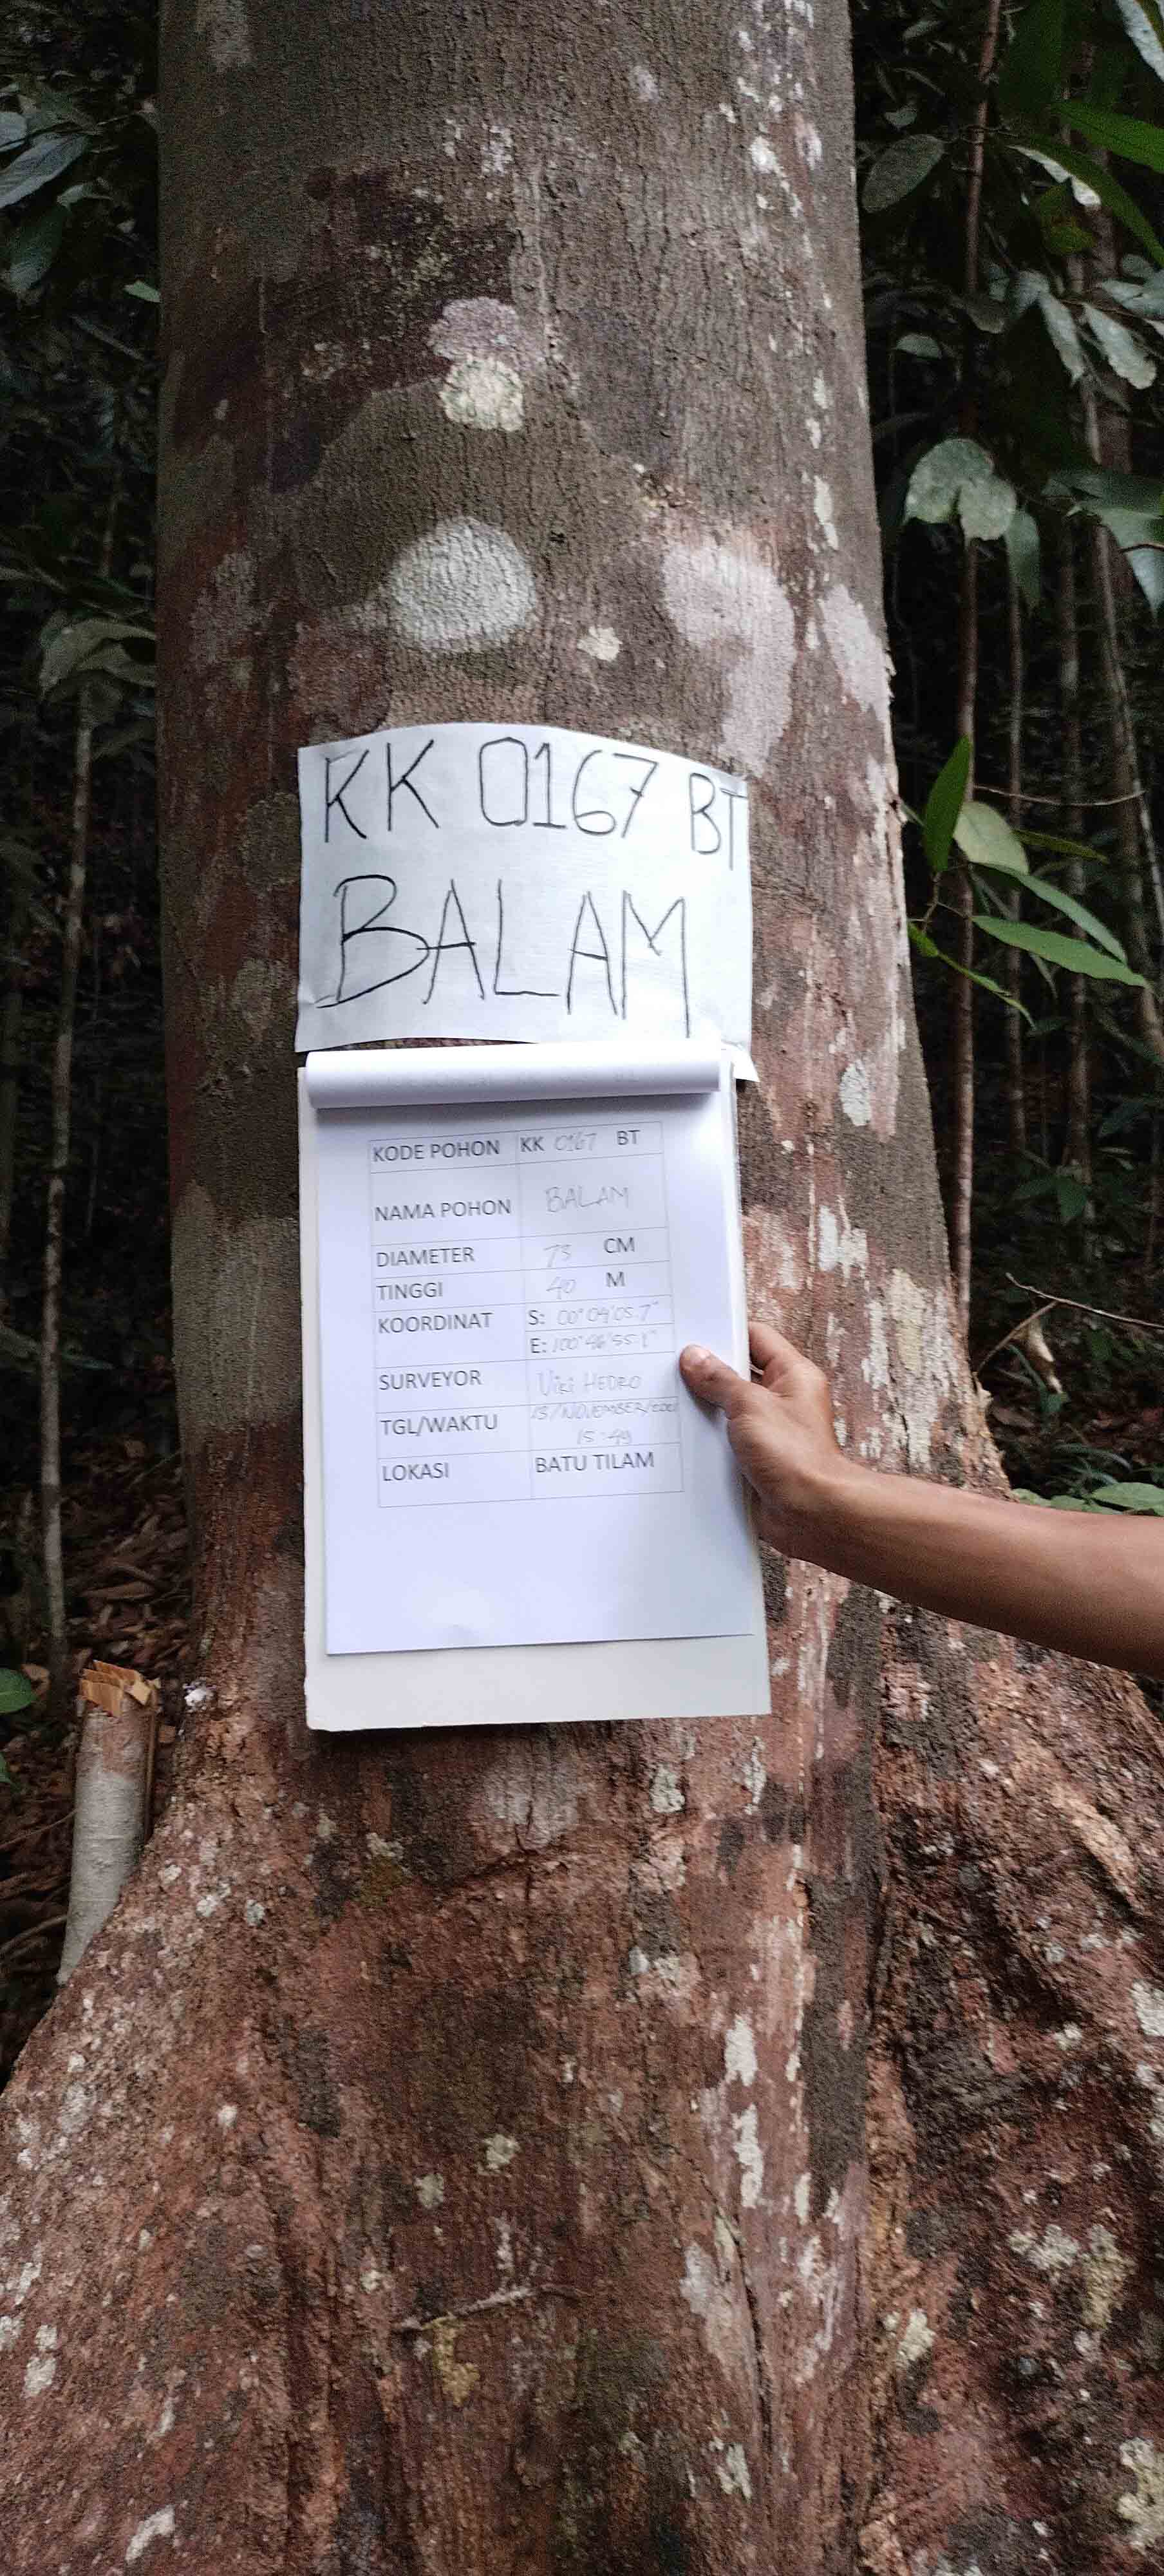 KK 0167 BT
BALAM
KODE POHON KK 0167 BT
NAMA POHON BALAM
DIAMETER 73 CM
TINGGI 40 M
KOORDINAT S: 00°04'05.7"
E: 100°46'55.1"
SURVEYOR Viki HEDRO
TGL/WAKTU 13/NOVEMBER/
15:49
LOKASI BATU TILAM